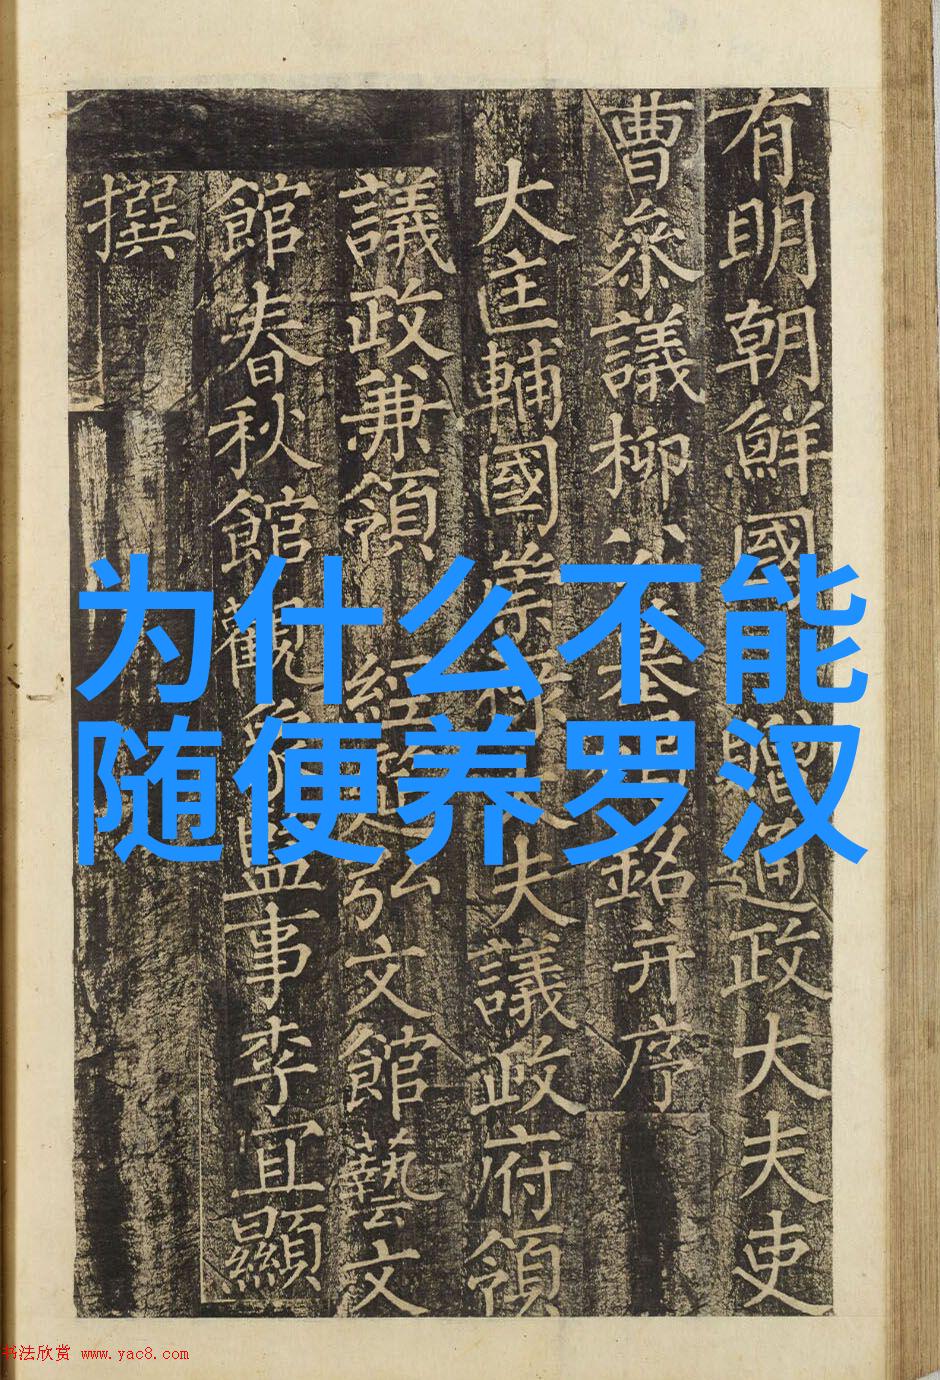 有明朝鮮國贈通政大夫吏
曹叅議柳公墓碣銘并序
大匡輔國崇祿大夫議政府領
議政兼領經筵弘文館藝文
館春秋館觀象監事李宜顯
撰
为什么不能
随便养罗汉
书法欣赏 www.yac8.com